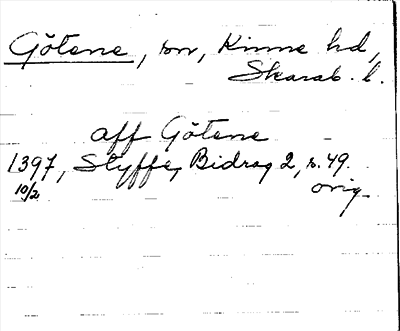 Götene, sn, Kinne hd,
Skarab. l.
aff Götene
1397, Styffe, Bidrag 2, s. 49.
10/2 orig.